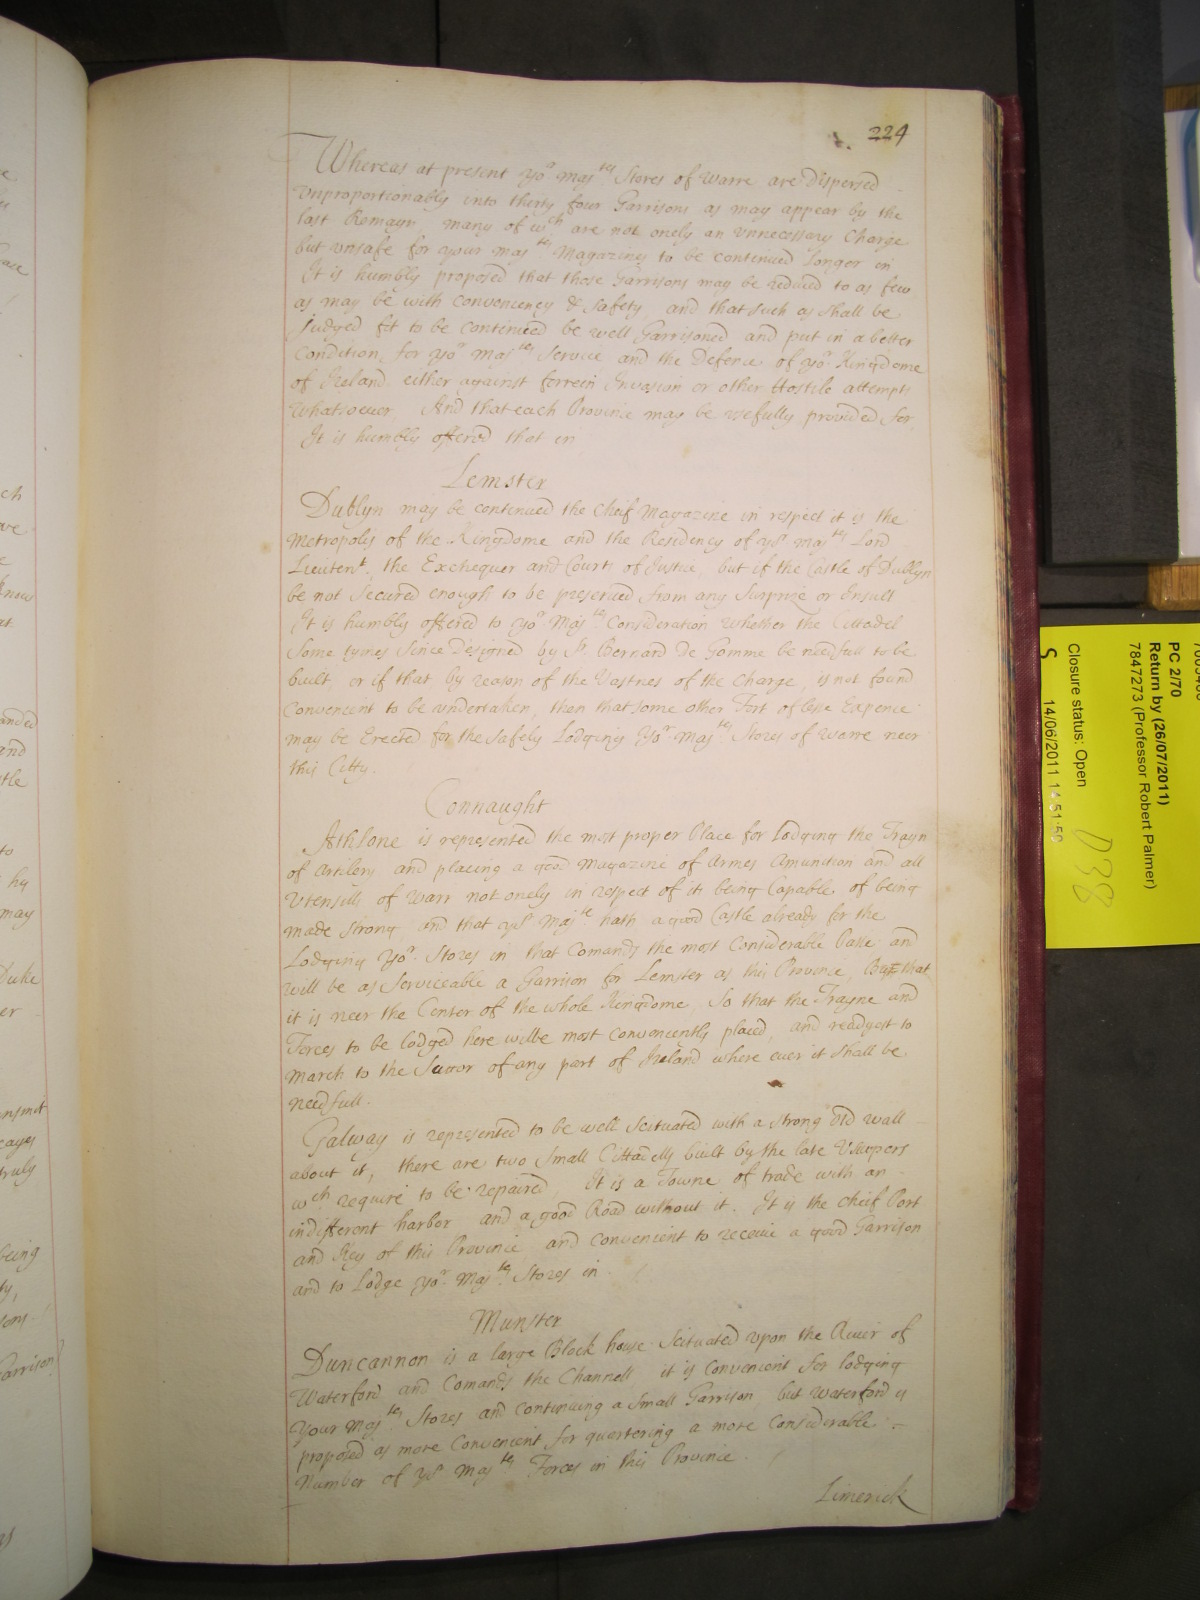 224
Whereas at present yor Majtys Stores of Warre are dispersed
Vnproportionably into thirty four Garrisons as may appear by the
last Remayn, many of wch are not onely an vnnecessary Charge
but vnsafe for your Majtys Magazines to be continued longer in
It is humbly proposed that those Garrisons may be reduced to as few
as may be with conveniency & safety, and that such as shall be
Judged fit to be continued be well Garrisoned and put in a better
Condition, for yor Majtes Service and the Defence of yor Kingdome
of Ireland either against forrein Invasion or other Hostile attempts
whatsoever. And that each Province may be vsefully provided for,
It is humbly offered that in
Lemster
Dublyn may be continued the cheif Magazine in respect it is the
Metropolis of the Kingdome and the Residency of yor Majtys Lord
Lieutent, the Exchequer and Courts of Justice, but if the Castle of Dublyn
be not Secured enough to be preserved from any Surprize or Insult
It is humbly offered to yor Majtes Consideration whether the Cittadel
Some tymes Since Designed by Sr. Bernard de Gomme be needfull to be
built, or if that by reason of the Vastnes of the Charge, is not found
Convenient to be undertaken, then that some other Fort of lesse Expence
may be Erected for the safely Lodging yor Majtys Stores of Warre neer
this Citty.
Connaught
Athlone is represented the most proper Place for Lodging the Trayn
of Artilery and placing a good Magazine of Armes Amunition and all
Vtensills of Warr not onely in respect of it being Capable of being
made Strong and that yor Majte hath a good Castle already for the
Lodging yor Stores in that Comands the most Considerable Passe and
will be as Serviceable a Garrison for Lemster as this Province, But that
it is neer the Center of the whole Kingdome, So that the Trayne and
Forces to be lodged here wilbe most conveniently placed, and reddyest to
march to the Succor of any part of Ireland where ever it shall be
needfull.
Galway is represented to be well Scituated with a strong old wall
about it, there are two Small Cittadells built by the late Vsurpers
wch require to be repaired, It is a Towne of trade with an
indifferent harbor and a good Road without it. It is the cheif Port
and Key of this Province and convenient to receive a good Garrison
and to Lodge yor Majtes Stores in
Munster
Duncannon is a large Block house Scituated vpon the River of
Waterford and Comands the Channell, it is Convenient for lodging
Your Majtes Stores and continuing a Small Garrison, but Waterford is
proposed as more Convenient for quartering a more Considerable
Number of yor Majtys Forces in this Province.
Limerick
PC 2/70
Return by (26/07/2011)
7847273 (Professor Robert Palmer)
Closure status: Open
D38
S 14/06/2011 14:51:50